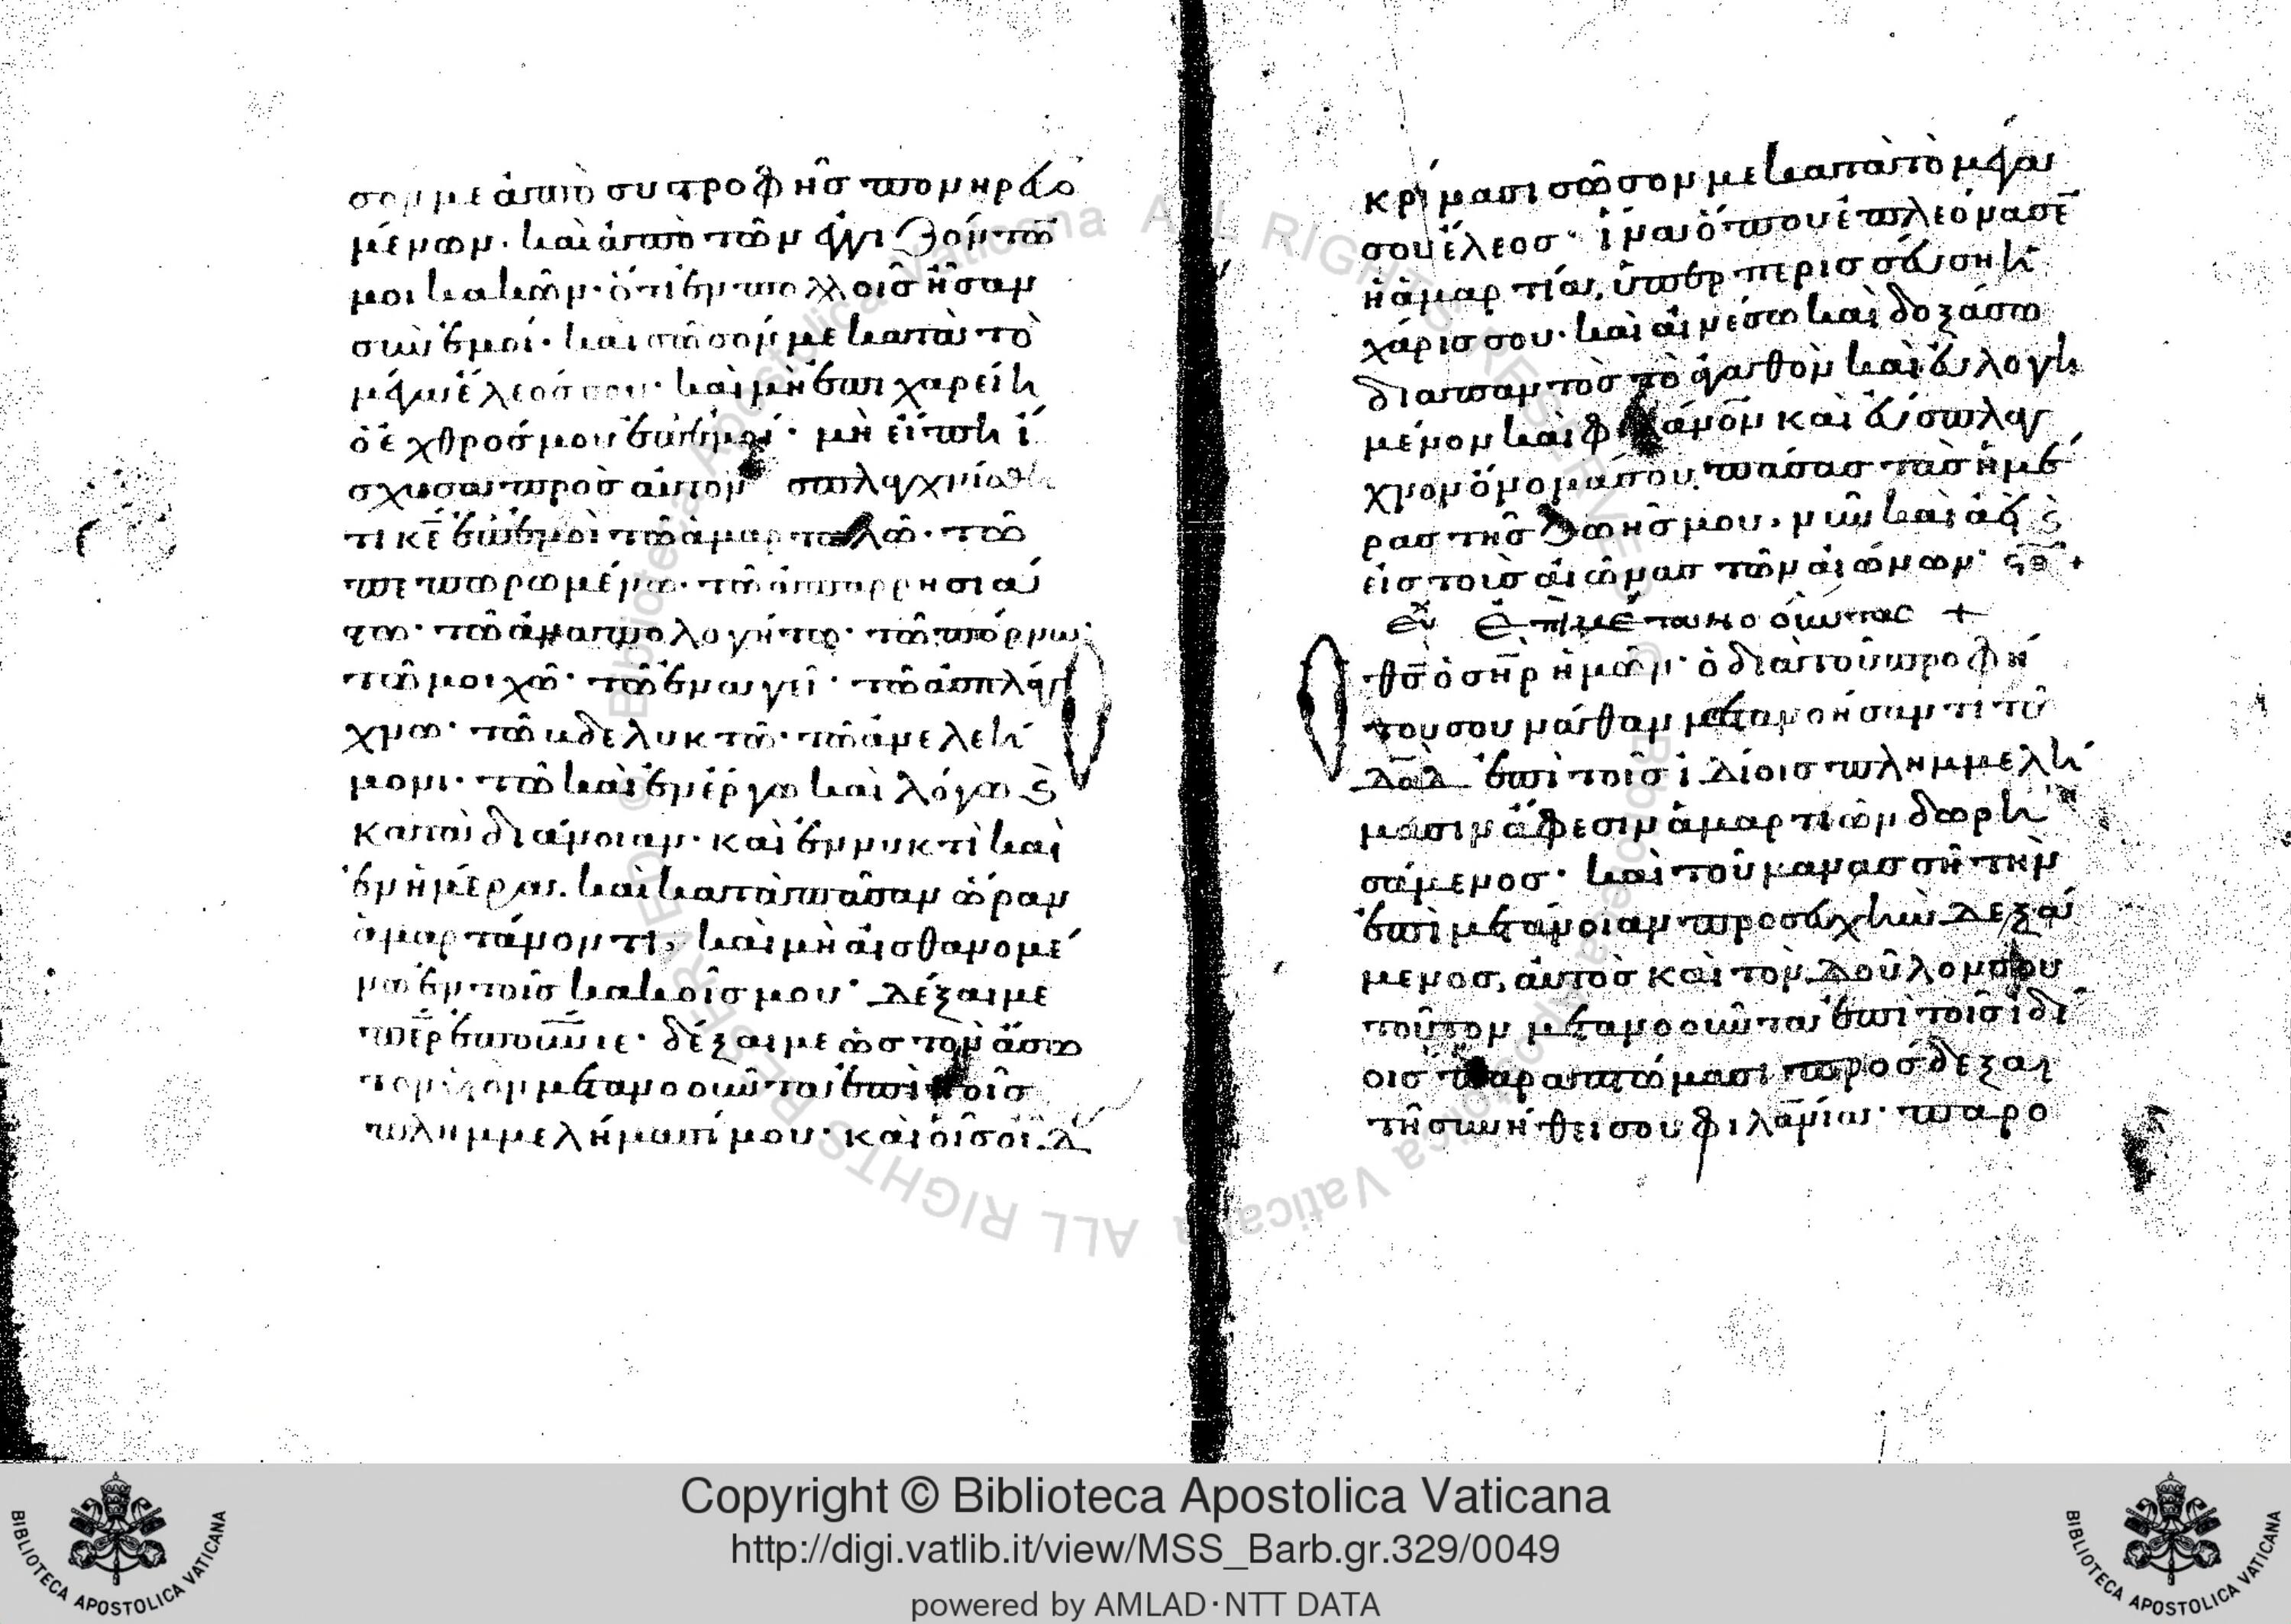 σον με ἀπὸ συστροφῆσ πονηρευο
μένων· καὶ ἀπὸ τῶν ἐγγιζόντω
μοι κακῶν· ὅτι ἐν πολλοῖσ ἦσαν
σὺν ἐμοί· καὶ σῶσόν με κατὰ τὸ
μέγα ἔλεόσ σου· καὶ μὴ ἐπιχαρείη
ὁ ἐχθρόσ μου ἐπ' ἐμοί· μὴ εἴπη ἴ
σχυσα πρὸσ αὐτόν σπλαγχνίσθη
τι κε ἐπ' ἐμοὶ τῶ ἁμαρτωλῶ· τῶ
πεπωρωμένω· τῶ ἀπαρρησιά
τῶ ἀναπολογήτω· τῶ πόρνω·
τῶ μοιχῶ· τῶ ἐναγεῖ· τῶ ἀσπλάγ
χνω· τῶ βδελυκτῶ· τῶ ἀμελεῖ
μονι· τῶ καὶ ἐν ἔργω καὶ λόγω καὶ
κατὰ διάνοιαν· καὶ ἐν νυκτὶ καὶ
ἐν ἡμέρα. καὶ κατὰ πᾶσαν ὥραν
ἁμαρτάνοντι, καὶ μὴ αἰσθανομέ
νω ἐν τοῖσ κακοῖσ μου· δέξαι με
περ ἐπουνιε· δέξαι με ὡσ τὸν ἄσω
τον μετανοοῦντα ἐπὶ τοῖσ
πλημμελήμασί μου· καὶ οἷσ οἶδ
κρίμασι σῶσον με κατὰ τὸ μέγα
σου ἔλεοσ· ἵνα ὅπου ἐπλεόνασε
ἡ ἁμαρτία, ὑπερπερισσεύση ἡ
χάρισ σου· καὶ αἰνέσω καὶ δοξάσω
διαπαντὸσ τὸ ἀγαθὸν καὶ εὐλογη
μένον καὶ φιλάνον καὶ εὔσπλαγ
χνον ὄνομά σου, πάσασ τὰσ ἡμέ
ρασ τῆσ ζωῆσ μου. νῦν καὶ ἀεὶ καὶ
εἰσ τοὺσ αἰῶνασ τῶν αἰώνων·
εὐχ ἐπὶ μετανοούντας +
θσ ὁ σηρ ἡμῶν· ὁ διὰ τοῦ προφή
του σου νάθαν μετανοήσαντι τῶ
δαδ ἐπὶ τοῖσ ἰδίοισ πλημμελή
μασιν ἄφεσιν ἁμαρτιῶν δωρη
σάμενοσ· καὶ τοῦ μανασσῆ τὴν
ἐπὶ μετάνοιαν προσευχὴν δεξά
μενοσ, αὐτὸσ καὶ τὸν δοῦλον σου
τοῦτον μετανοοῦντα ἐπὶ τοῖσ ἰδί
οισ παραπτώμασι προσδεξαι
τῆ συνήθει σου φιλανία· παρο
Copyright © Biblioteca Apostolica Vaticana
http://digi.vatlib.it/view/MSS_Barb.gr.329/0049
powered by AMLAD·NTT DATA